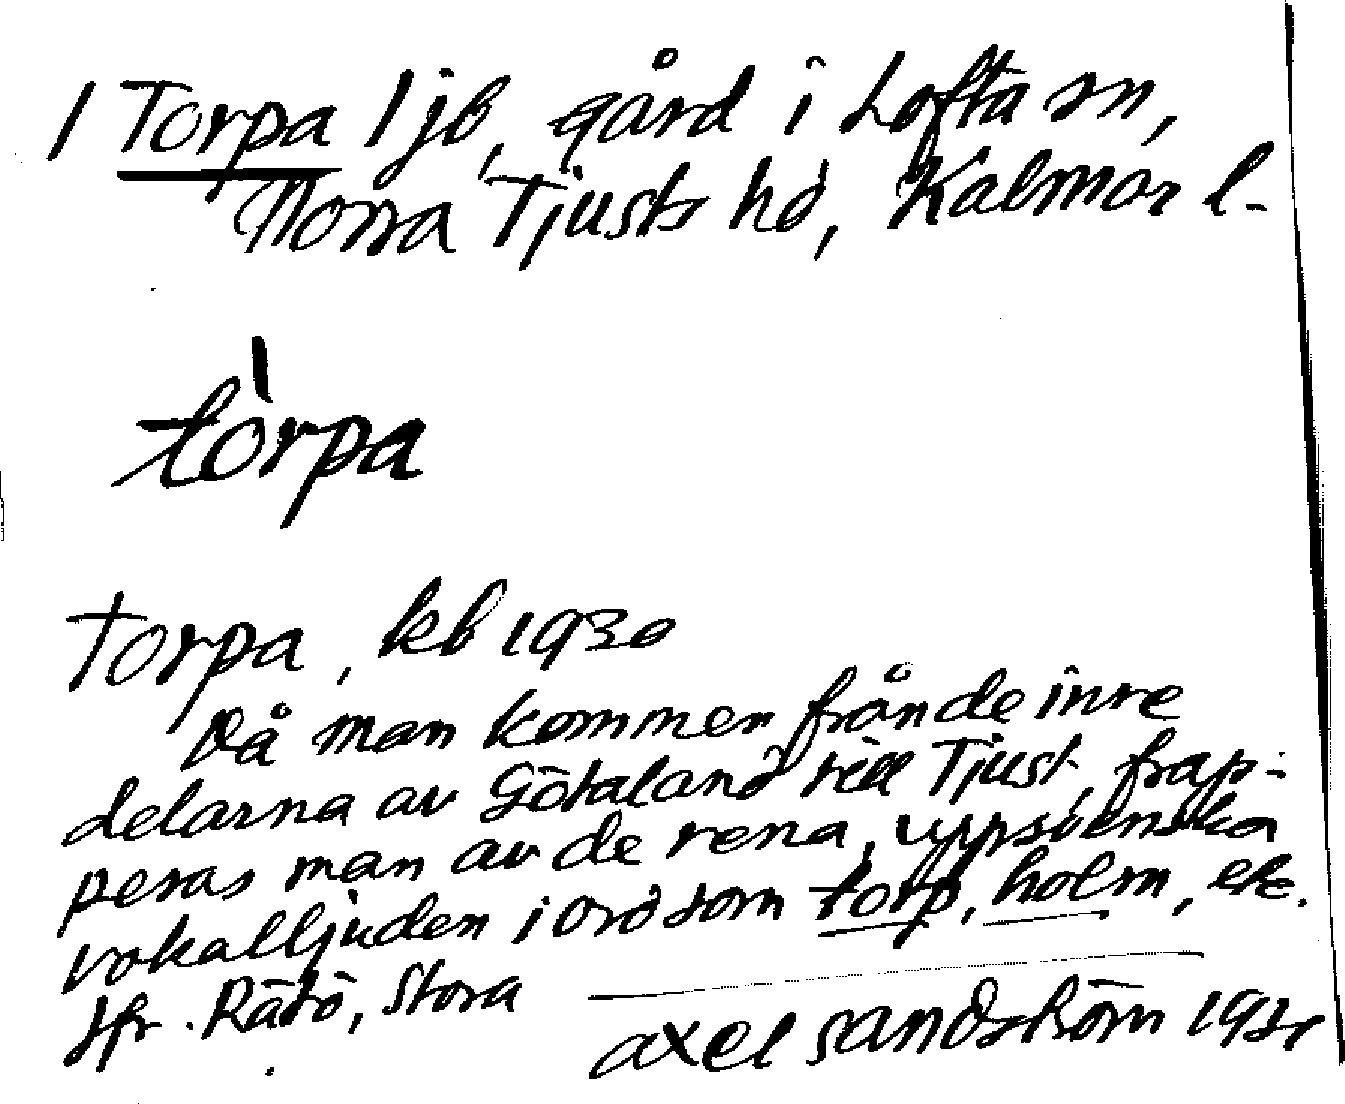 1 Torpa 1 jb, gård i Lofta sn,
Norra Tjusts hd, Kalmar l.
tórpa
Torpa, kb 1930
Då man kommer från de inre
delarna av Götaland till Tjust, frap-
peras man av de rena, uppsvenska
vokalljuden i ord som torp, holm, etc.
Jfr. Rätö, Stora
axel sandström